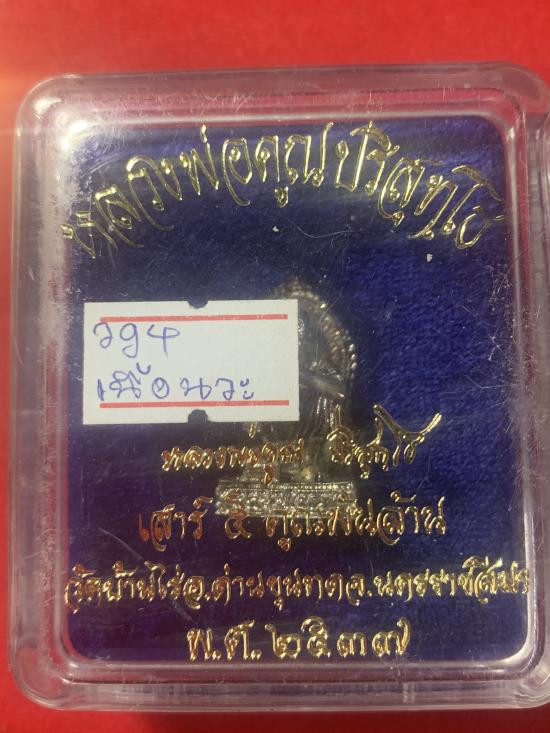 หลวงพ่อคูณ ปริสุทฺโธ
เนื้อนวะ
หลวงพ่อคูณ ปริสุทฺโธ
เสาร์ ๕ คูณพันล้าน
วัดบ้านไร่ อ.ด่านขุนทด จ.นครราชสีมา
พ.ศ.๒๕๓๗